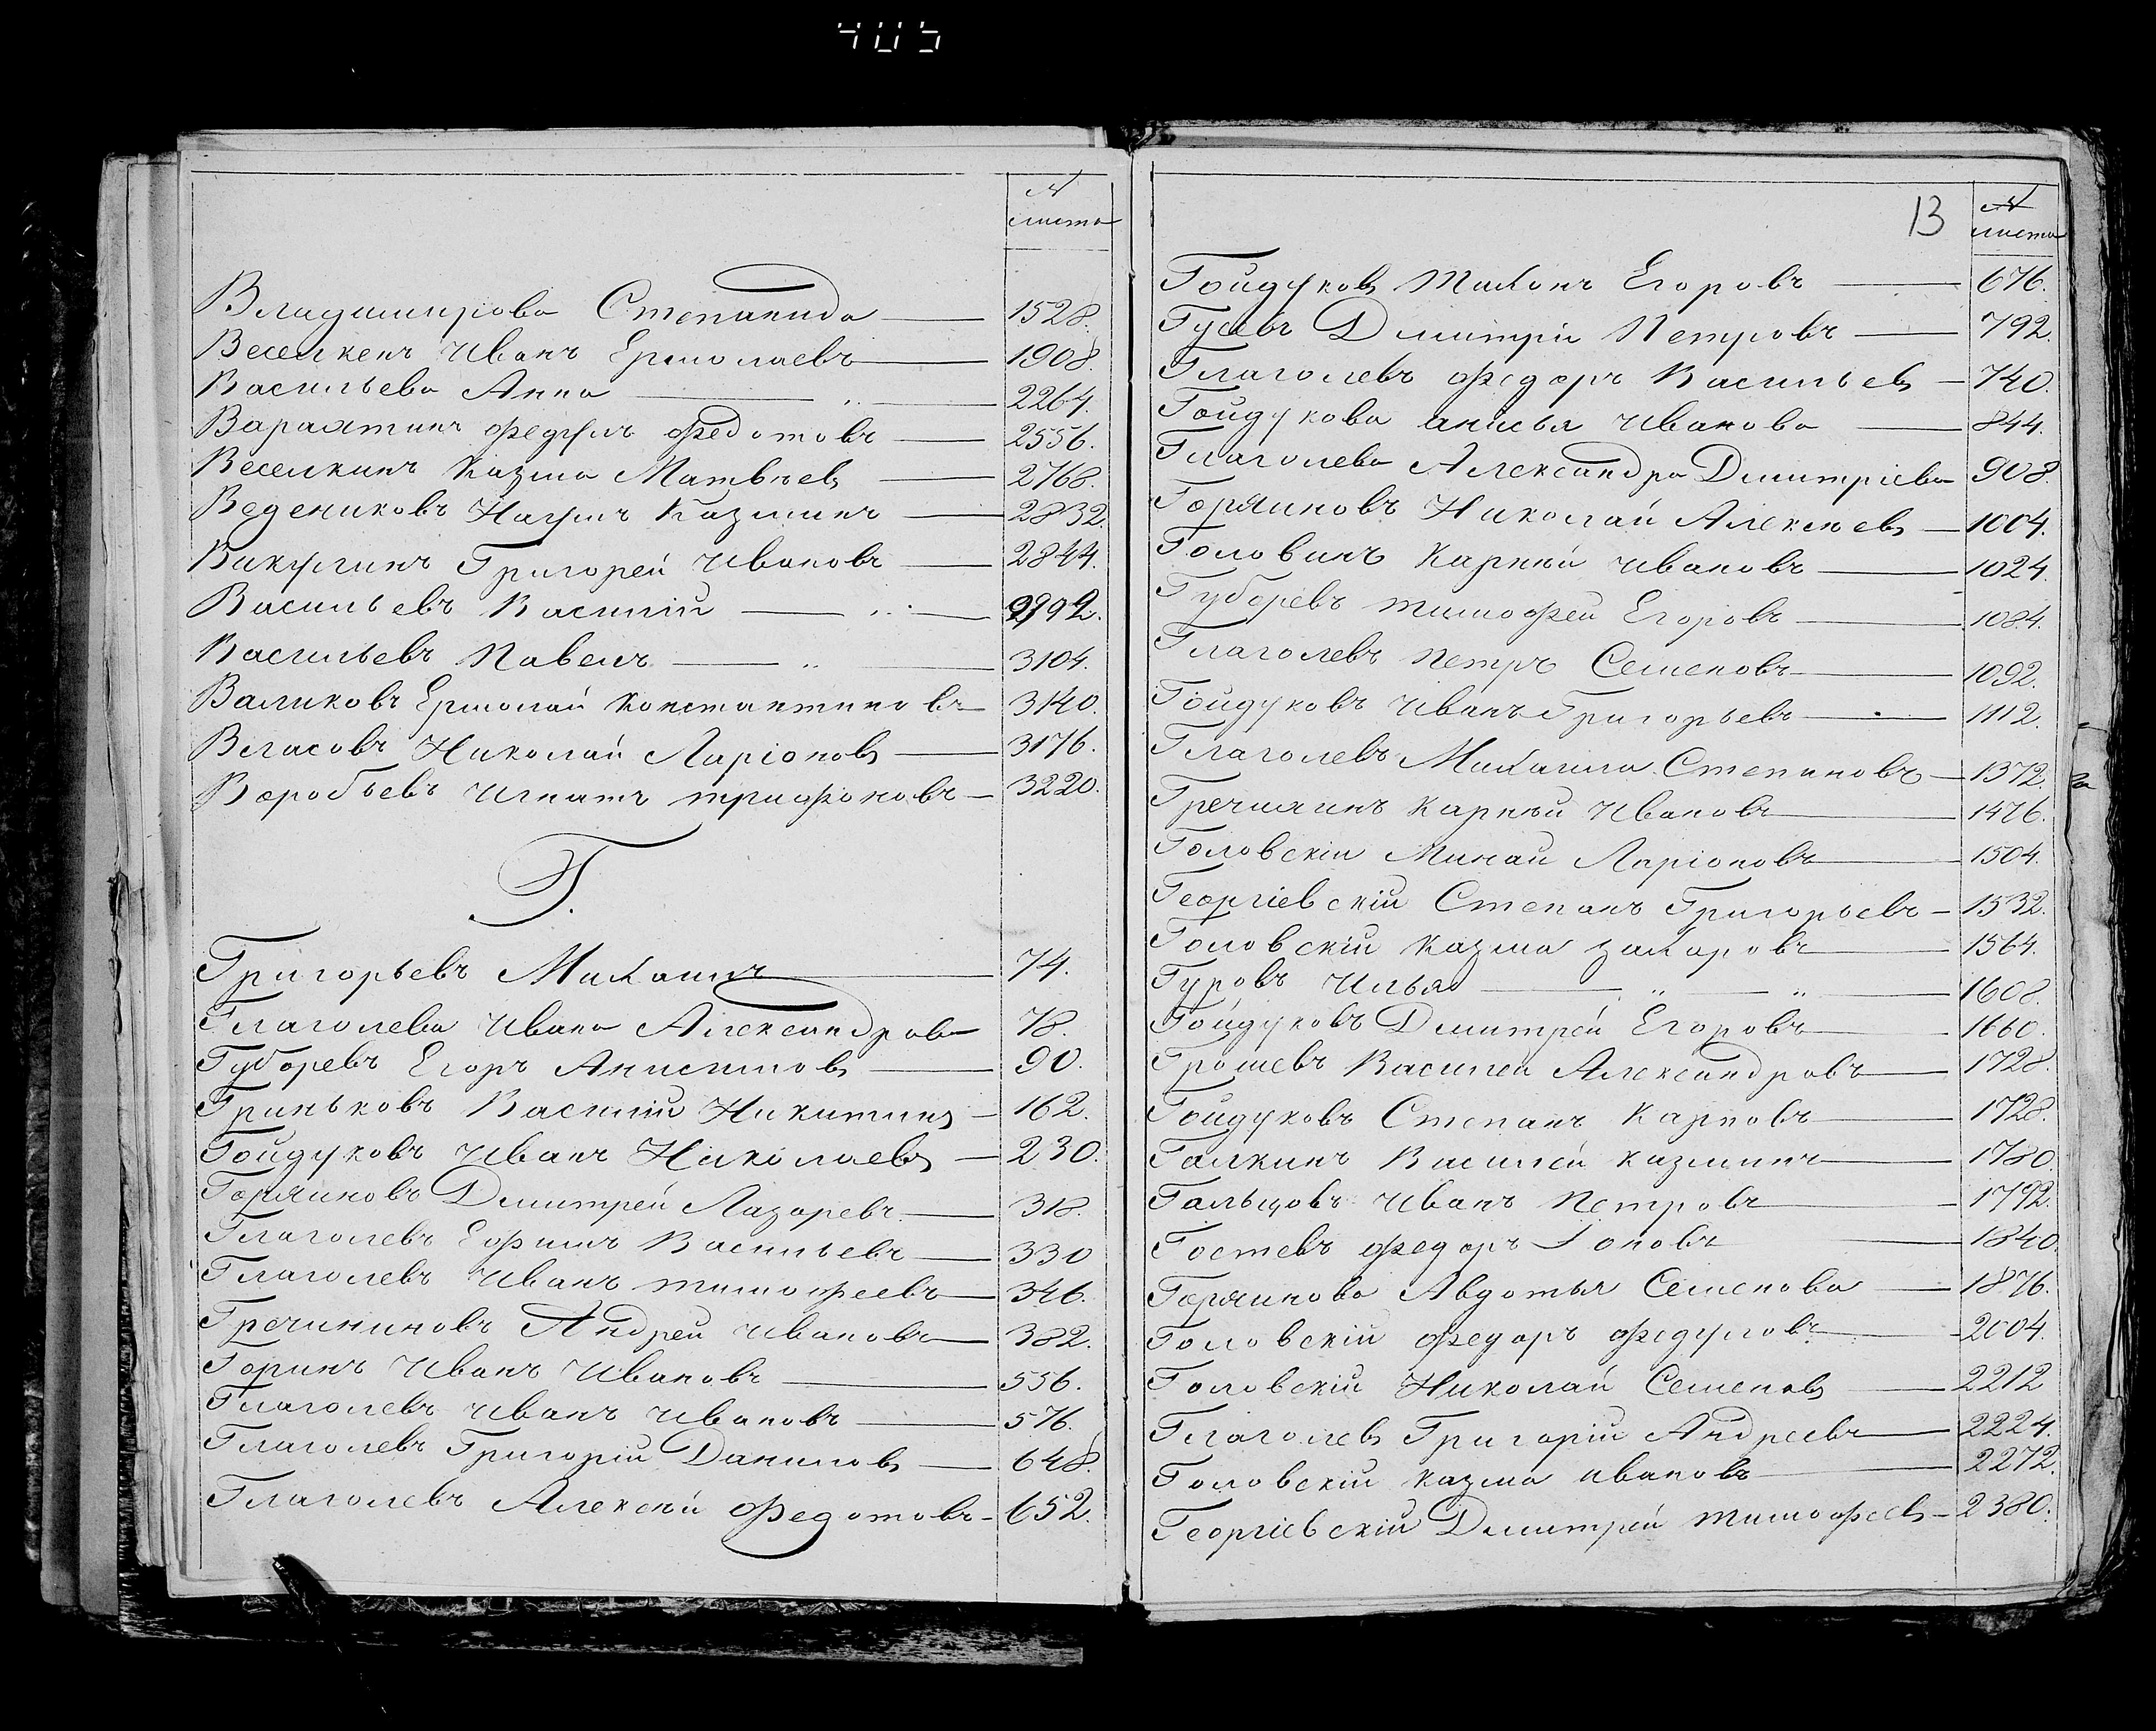 405
№
листа
Владимирова Степанида 1528.
Веселкенъ Иванъ Ермолаевъ 1908.
Васильева Анна 2264.
Вараятинъ Федулъ Федотовъ 2556.
Веселкинъ Казма Матвѣевъ 2768.
Ведениковъ Наумъ Казминъ 2832.
Викулинъ Григорей Ивановъ 2844.
Васильевъ Василий 2992.
Васильевъ Павелъ 3104.
Валиковъ Ермолай Константиновъ 3140.
Власовъ Николай Ларіоновъ 3176.
Воробьевъ Игнатъ Трифоновъ 3220.
Г.
Григорьевъ Михаилъ 74.
Глаголева Ивана Александрова 78.
Губоревъ Егоръ Анисимовъ 90.
Гриньковъ Василий Никитинъ 162.
Гойдуковъ Иванъ Николаевъ 230.
Горяиновъ Дмитрей Лазаревъ 318.
Глаголевъ Ефимъ Васильевъ 330
Глаголевъ Иванъ Тимофеевъ 346.
Гречининовъ Андрей Ивановъ 382.
Горинъ Иванъ Ивановъ 556.
Глаголевъ Иванъ Ивановъ 576.
Глаголевъ Григорій Даниловъ 648.
Глаголевъ Алексѣй Федотовъ 652.
13
№
листа
Гойдуковъ Тихонъ Егоровъ 676.
Гусевъ Дмитрій Петровъ 792.
Глаголевъ Федоръ Васильевъ 740.
Гойдукова Анисья Иванова 844.
Глаголева Александра Дмитріева 908.
Горяиновъ Николай Алексѣевъ 1004.
Головинъ Карнѣй Ивановъ 1024.
Губоревъ Тимофей Егоровъ 1084.
Глаголевъ Петръ Семеновъ 1092.
Гойдуковъ Иванъ Григорьевъ 1112.
Глаголевъ Михаила Степановъ 1372.
Гречихинъ Карнѣй Ивановъ 1476.
Головскій Минай Ларіоновъ 1504.
Георгіевскій Степанъ Григорьевъ 1532.
Головскій Казма Захаровъ 1564.
Гуровъ Илья 1608.
Гойдуковъ Дмитрей Егоровъ 1660.
Грошевъ Василей Александровъ 1728.
Гойдуковъ Степанъ Карповъ 1728.
Галкинъ Василей Казминъ 1780.
Гальцовъ Иванъ Петровъ 1792.
Гостевъ Федоръ Іоновъ 1840.
Горяинова Авдотья Семенова 1876.
Головскій Федоръ Федуловъ 2004.
Головскій Николай Семеновъ 2212
Глаголевъ Григорій Андреевъ 2224.
Головскій Казма Ивановъ 2272.
Георгіевскій Дмитрей Тимофеевъ 2380.